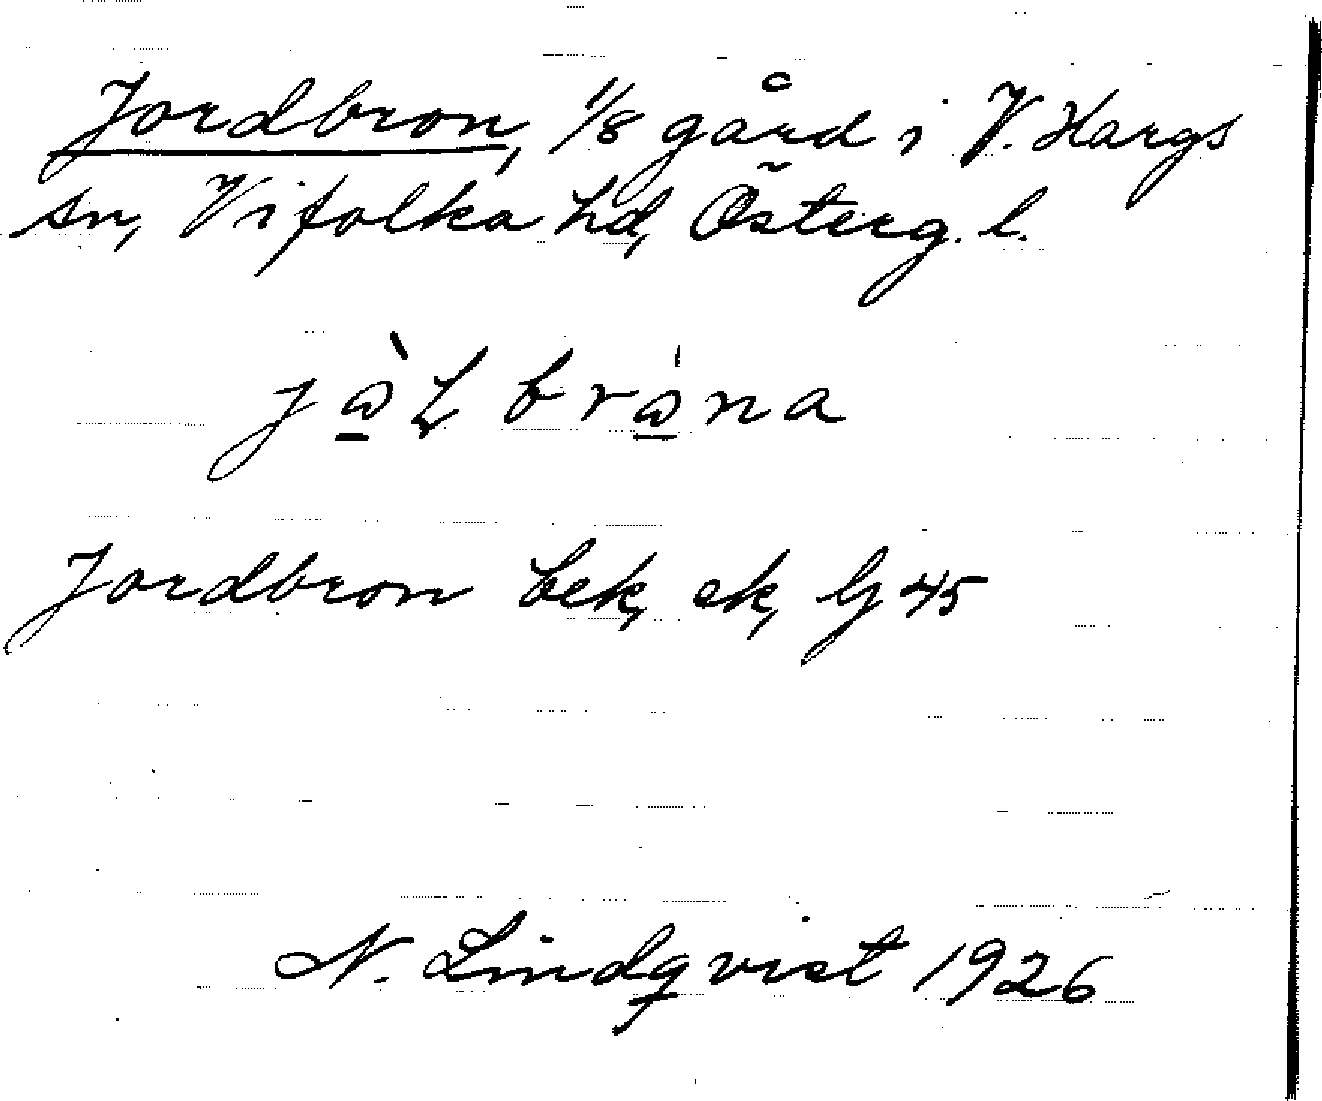 Jordbron, 1/8 gård i V. Hargs
sn, Vifolka hd, Österg. l.
jὼ̲ɽ brώ̲na
Jordbron bek, ek, Gj 45
N. Lindqvist 1926